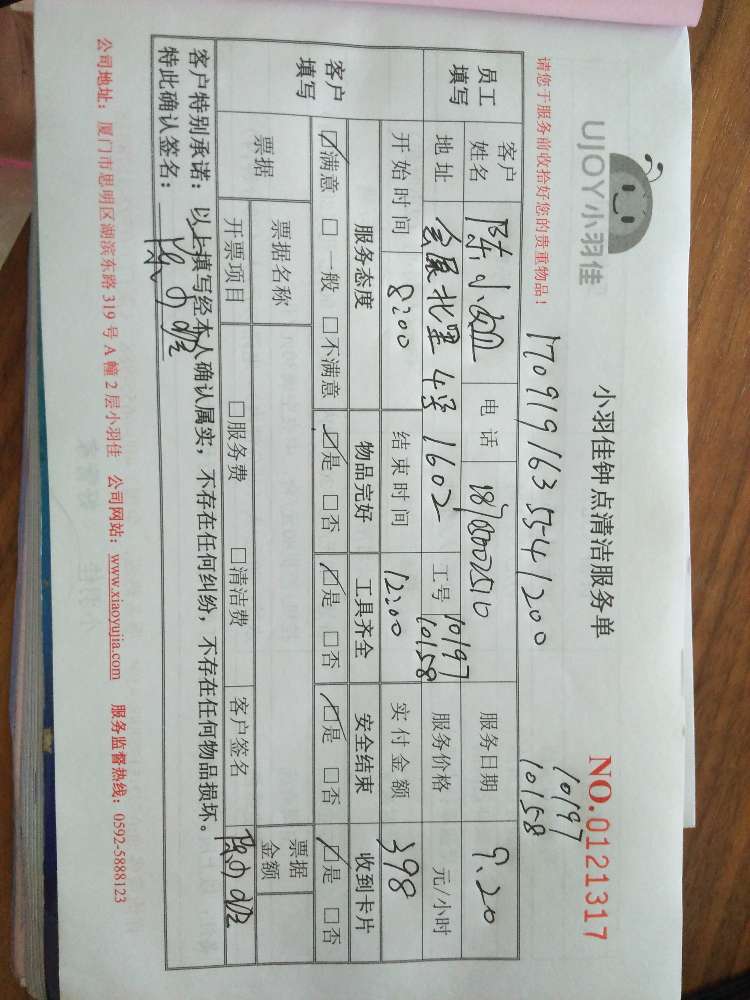 UJOY小羽佳
小羽佳钟点清洁服务单
NO.0121317
请您于服务前收拾好您的贵重物品！
10197
10158
员工填写
客户姓名 陈小 电话 服务日期 9.20
地址 会展北里4号1602 工号 10197 10158 服务价格 元/小时
开始时间 8:00 结束时间 12:00 实付金额 398
客户填写
服务态度 物品完好 工具齐全 安全结束 收到卡片
☑满意 □一般 □不满意 ☑是 □否 ☑是 □否 ☑是 □否 ☑是 □否
票据 票据名称 票据金额
开票项目 □服务费 □清洁费 客户签名
客户特别承诺：以上填写经本人确认属实，不存在任何纠纷，不存在任何物品损坏。
特此确认签名：
公司地址：厦门市思明区湖滨东路319号A幢2层小羽佳 公司网站：www.xiaoyujia.com 服务监督热线：0592-5888123